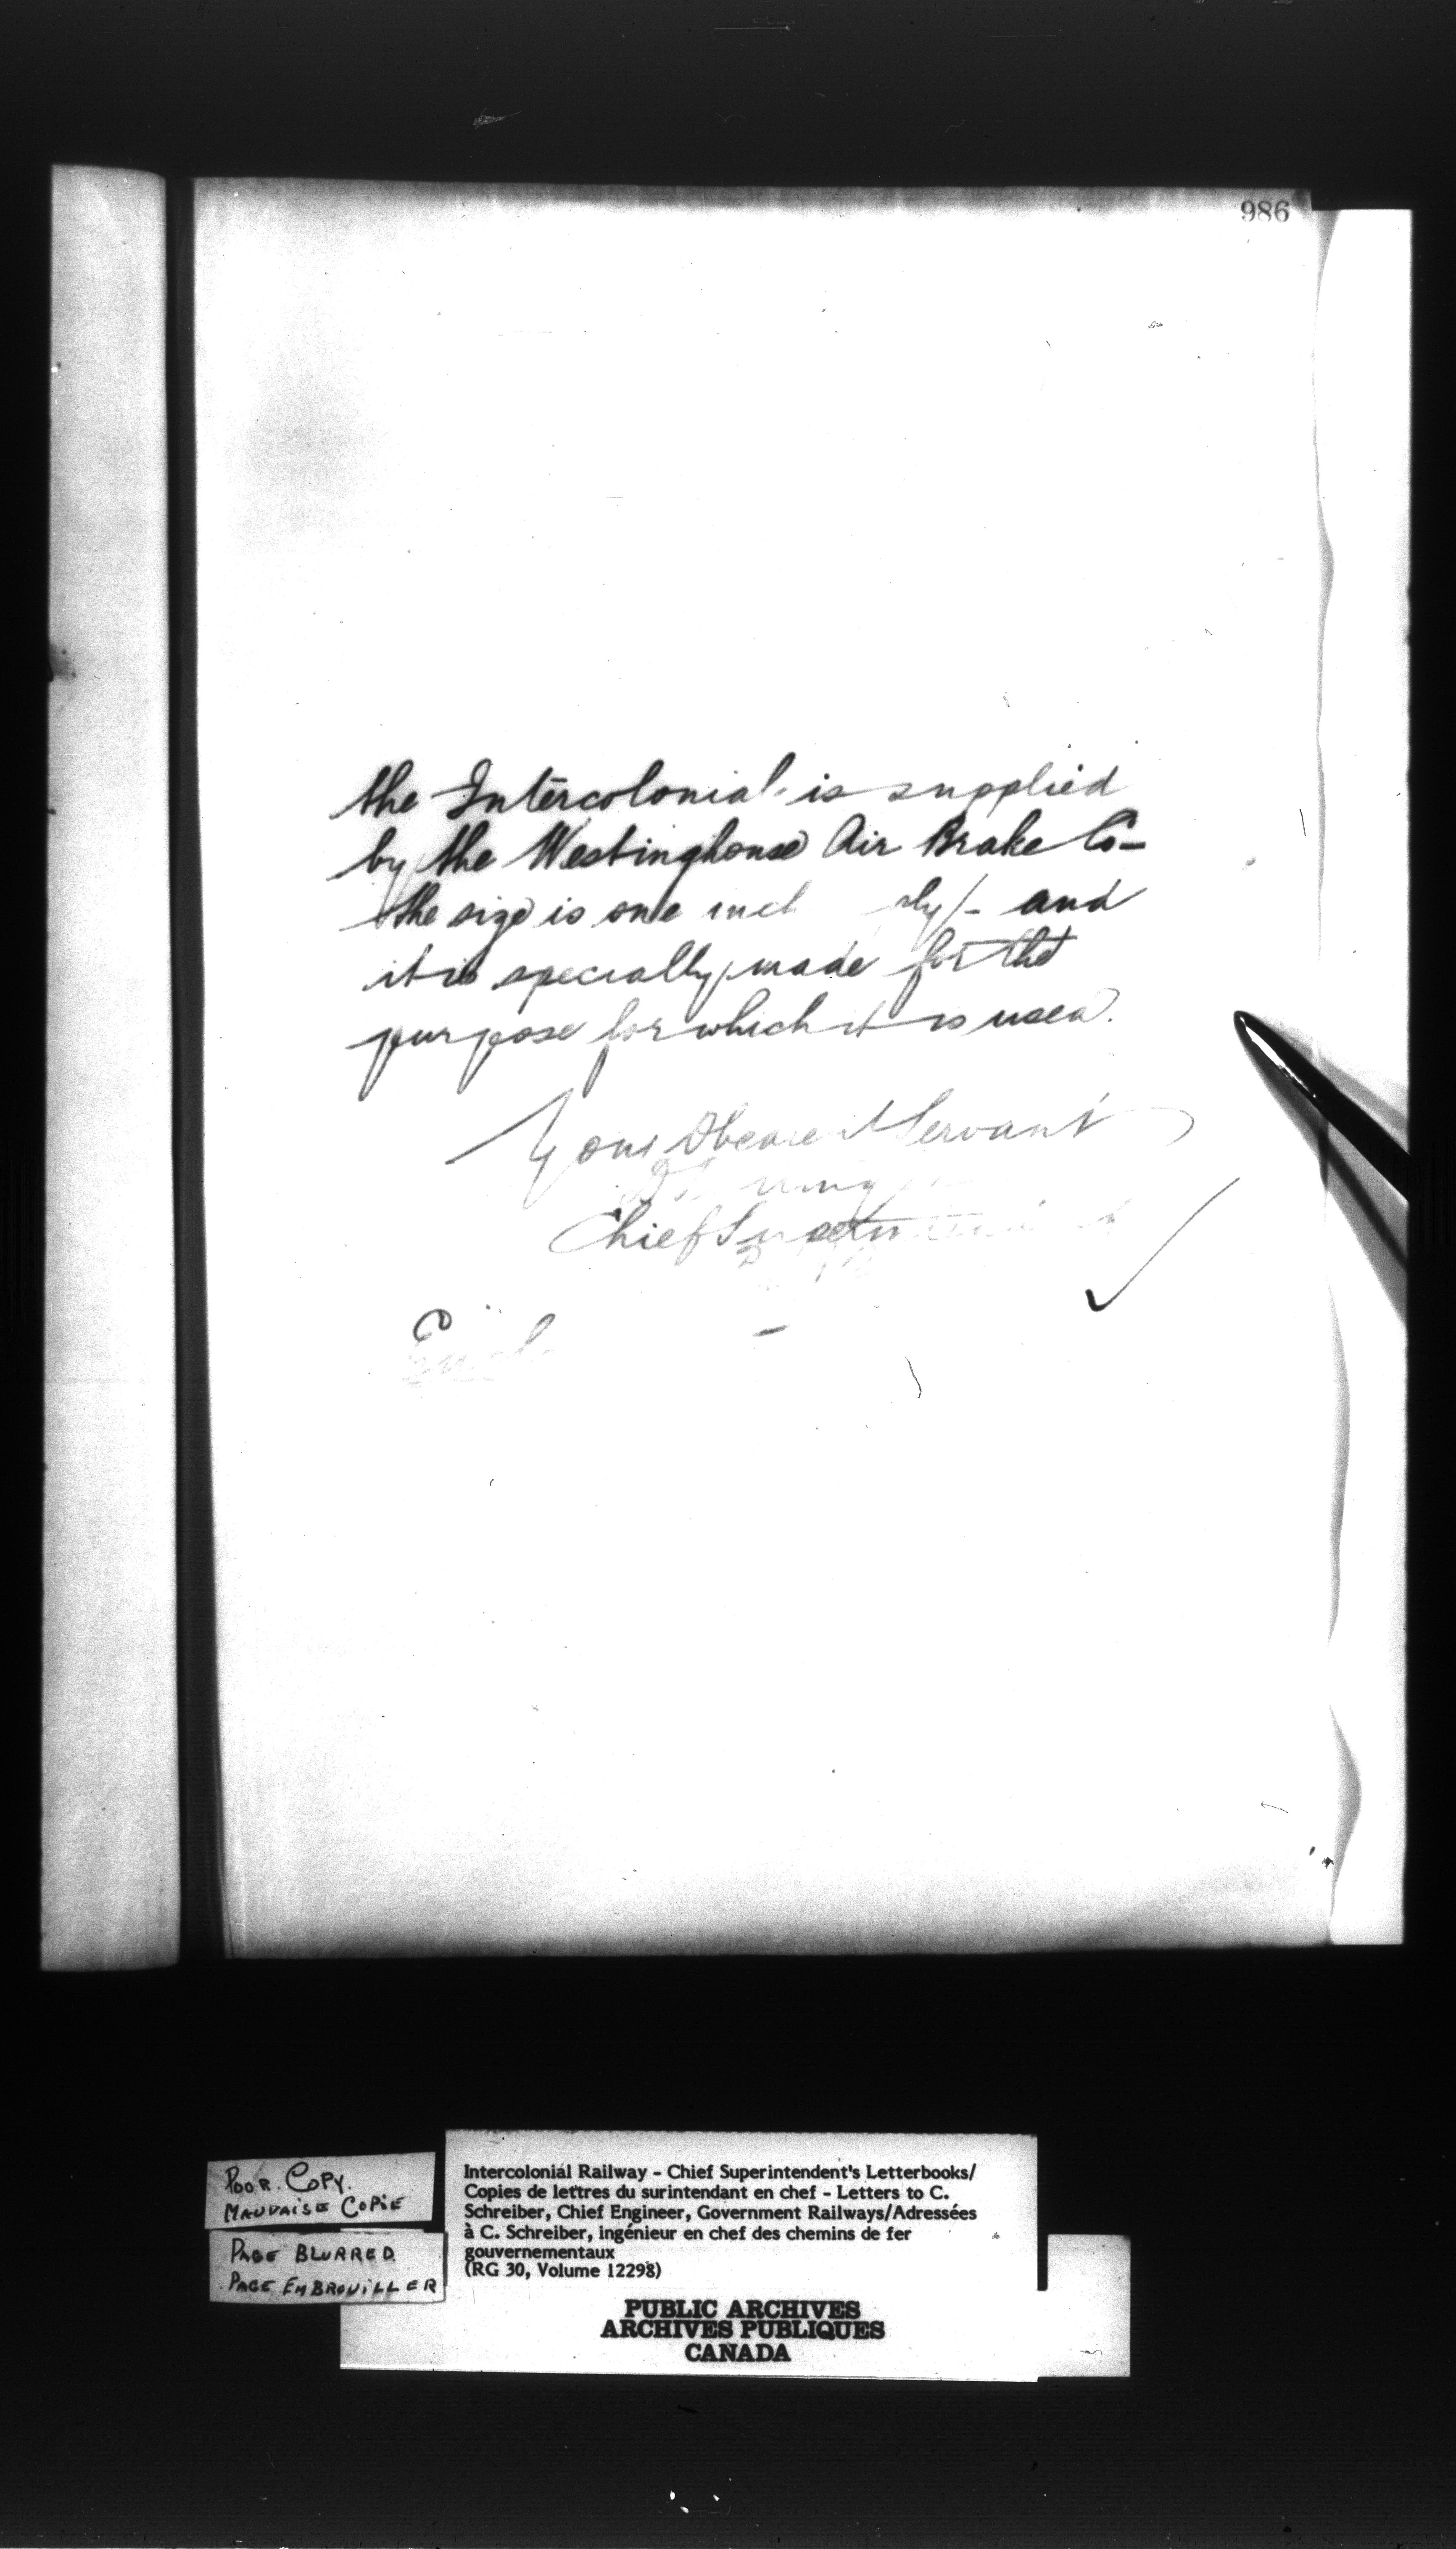 986
the Intercolonial is supplied
by the Westinghouse Air Brake Co-
the size is one inch ply/- and
it is specially made for the
purpose for which it is used.
Your Obedient Servant
Chief Superintendent
Encl
POOR. COPY.
MAUVAISE COPIE
PAGE BLURRED
PAGE EMBROUILLER
Intercolonial Railway - Chief Superintendent's Letterbooks/
Copies de lettres du surintendant en chef - Letters to C.
Schreiber, Chief Engineer, Government Railways/Adressées
à C. Schreiber, ingénieur en chef des chemins de fer
gouvernementaux
(RG 30, Volume 12298)
PUBLIC ARCHIVES
ARCHIVES PUBLIQUES
CANADA